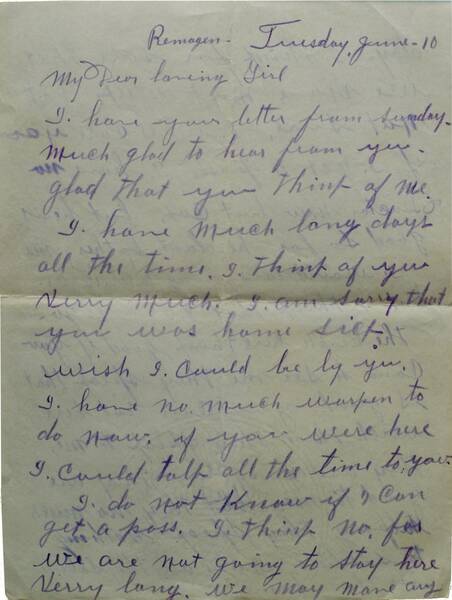 Remagen- Tuesday, June-10
My Dear loving Girl
I. have your letter from sunday.
Much glad to hear from you.
glad that you think of Me.
I. have Much long days
all the time. I. think of you
Verry Much. I. am sorry that
you was home sick.
wish I. Could be by yu.
I. have no. much worken to
do Now. if you were here
I. Could talk all the time to, you.
I. do not Know if I Can
get a pass. I. think no. for
We are not going to stay here
Verry long. We may move any